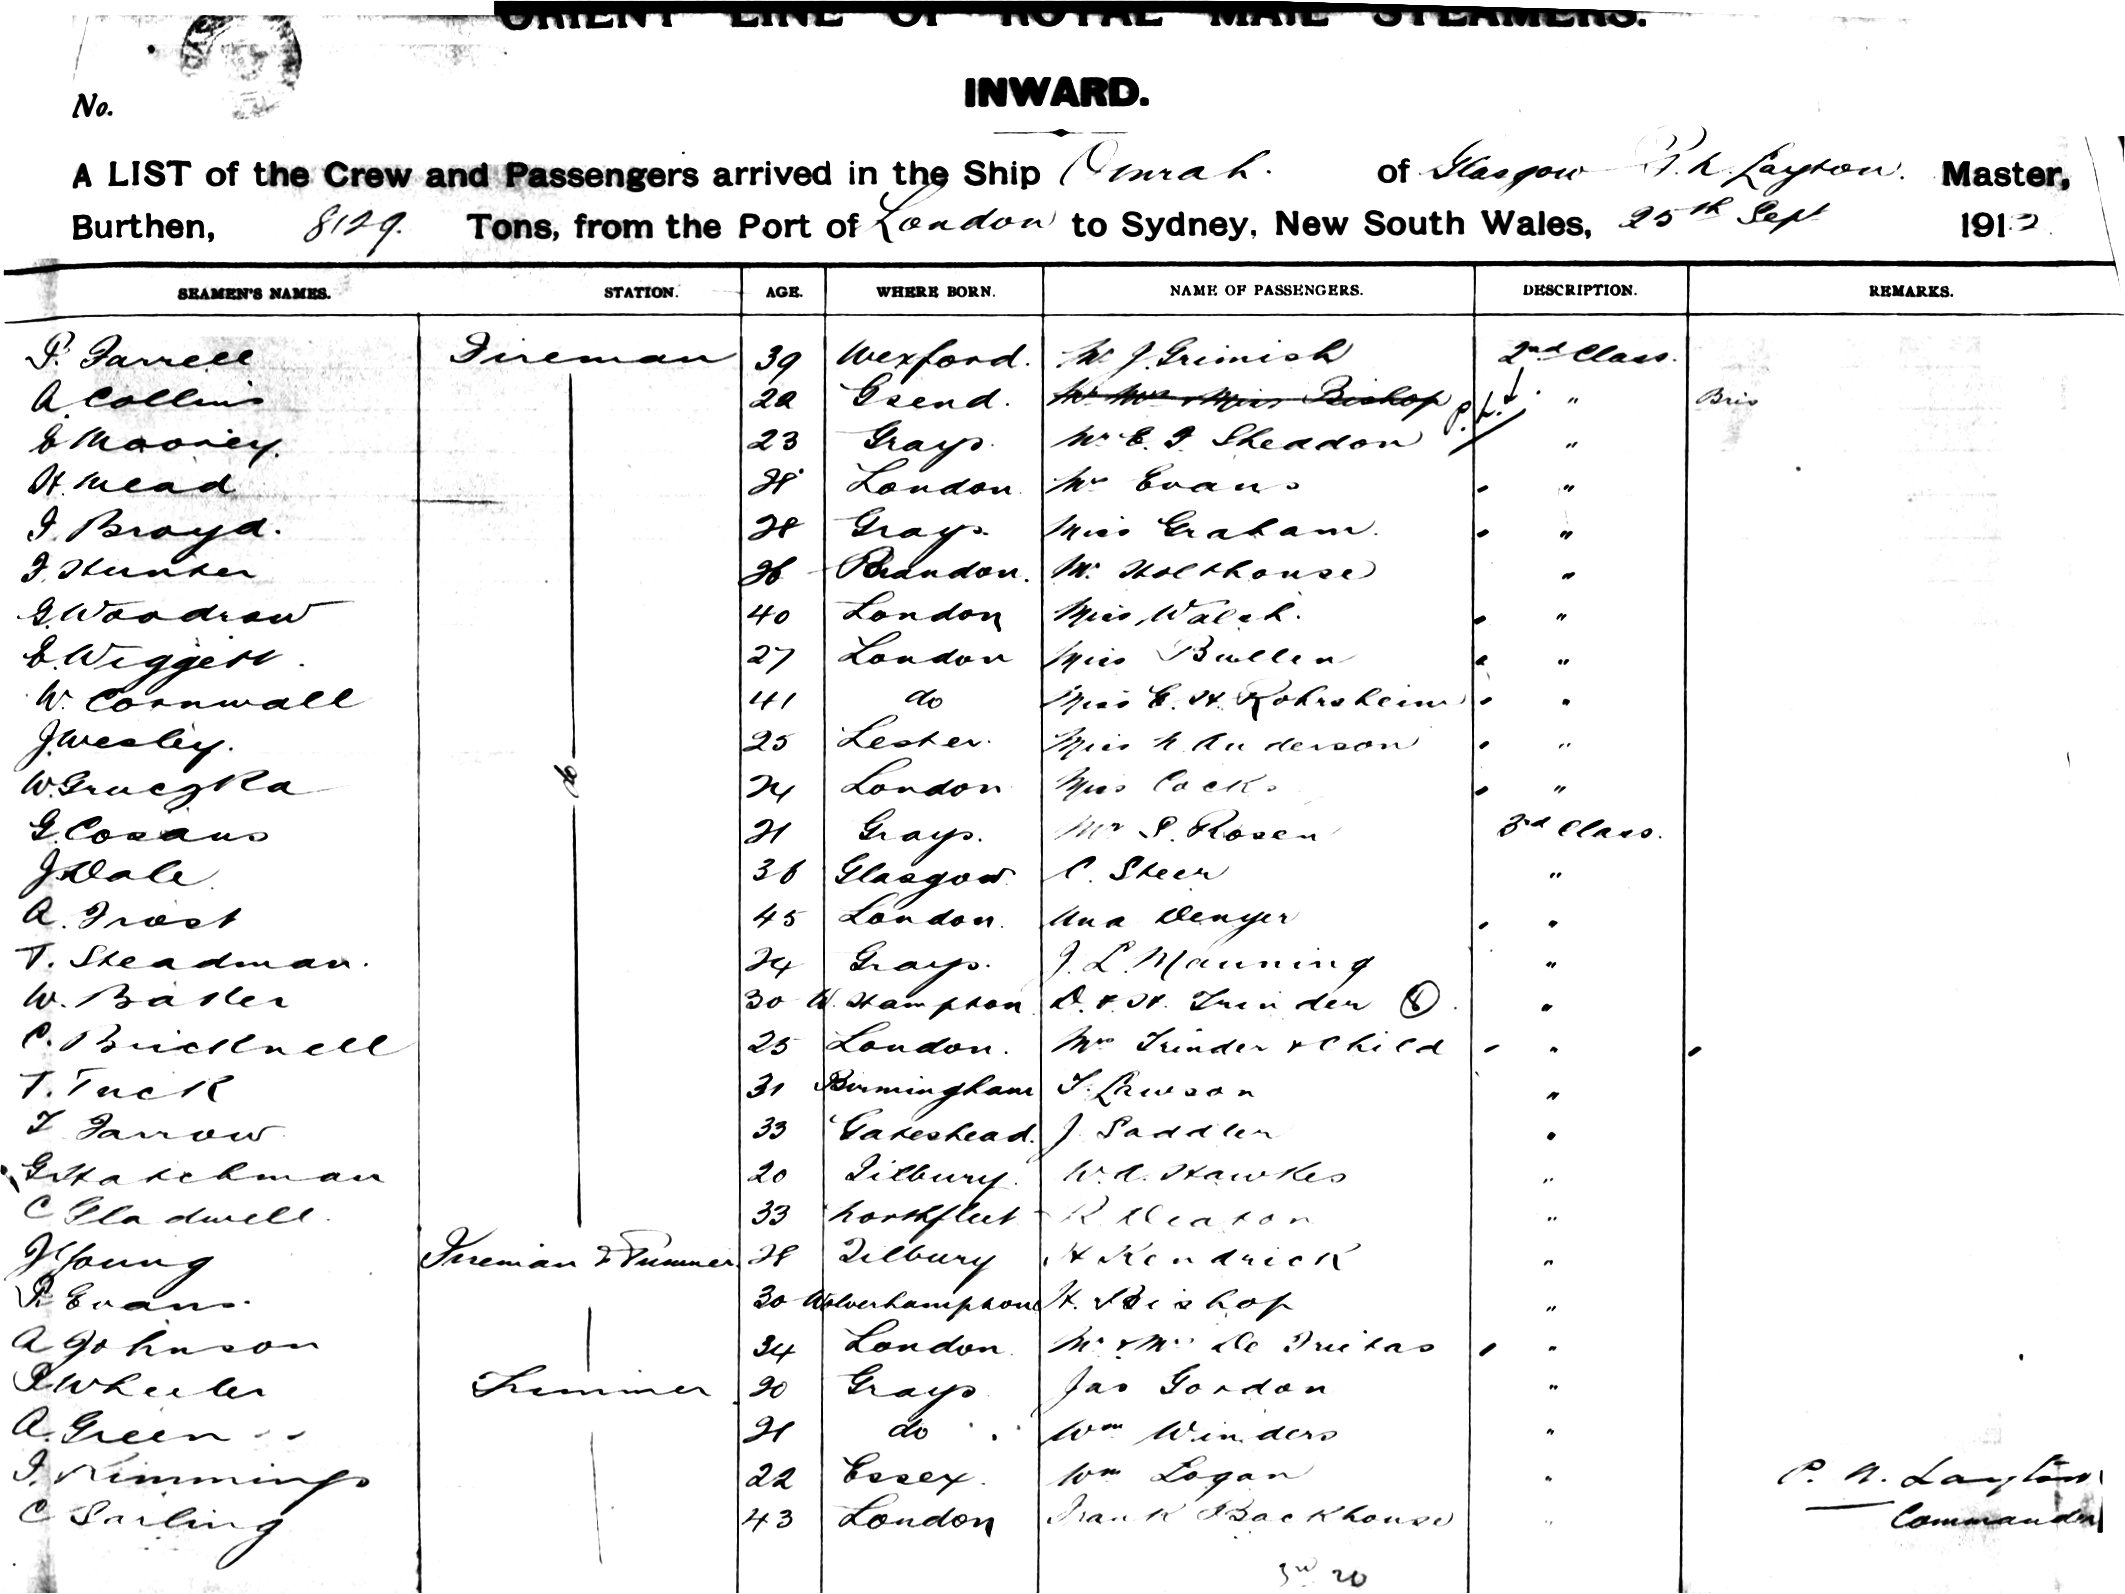 ORIENT LINE OF ROYAL MAIL STEAMERS.
INWARD.
No.
A LIST of the Crew and Passengers arrived in the Ship Omrah. of Glasgow P. N. Layton. Master,
Burthen, 8129. Tons, from the Port of London to Sydney, New South Wales, 25th Sept 1912.
SEAMEN'S NAMES. STATION. AGE. WHERE BORN. NAME OF PASSENGERS. DESCRIPTION. REMARKS.
P. Farrell Fireman 39 Wexford. Mr J. Grimish 2nd Class.
A. Collins 22 Gsend. Mr Mrs & Miss Bishop " Bris
E Mooney. 23 Grays. Mr E. F. Sheddon "
H. Mead 28 London. Mr Evans "
F. Broyd. 28 Grays. Miss Graham. "
F. Hunter 26 Brandon. Mr. Holthouse "
G. Woodrow 40 London Miss Walsh. "
E. Wiggett. 27 London Miss Bullen "
W. Cornwall 41 do Miss E. H. Rohrsheim "
J. Wesley. 25 Lester. Miss N. Anderson "
W. Gruczka do 24 London Miss Cocks "
G. Cosans 21 Grays. Mr S. Rosen 3rd Class.
J. Dale. 36 Glasgow. C. Steer "
A. Frost 45 London. Una Denyer "
T. Steadman. 24 Grays. J. L. Manning "
W. Baker 30 W. Hampton D. & H. Trinder 8 "
C. Bricknell 25 London. Mrs Trinder & Child "
T. Tuck 31 Birmingham T. Lawson "
T Farrow 33 Gateshead. J. Saddler "
G. Hatchman 20 Tilbury. W. A. Hawkes "
C Gladwell. 33 Northfleet R. Deaton "
J. Young Fireman & Trimmer 28 Tilbury H Kendrick "
P. Evans. 30 Wolverhampton H. Bishop "
A Johnson 34 London. Mr & Mrs De Freitas "
P. Wheeler Trimmer 20 Grays Jas Gordon "
A. Green 21 do Wm Winders "
F. Kimmings 22 Essex. Wm Logan " P. N. Layton
C Sarling 43 London Frank Backhouse " Commander
20